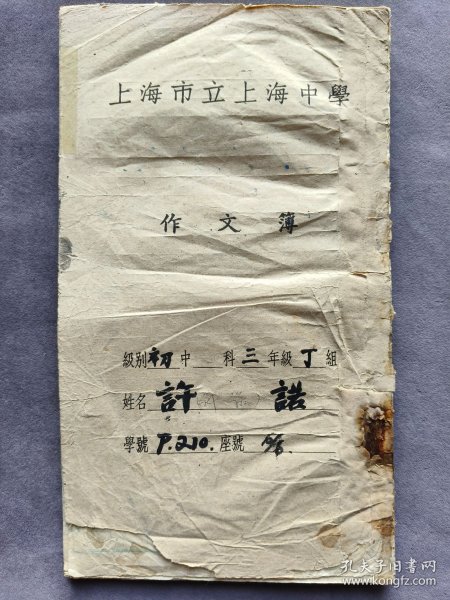 上海市立上海中學
作文簿
級別初中 科三年級丁組
姓名許 諾
學號P.210.座號
孔夫子旧书网
www.kongfz.com